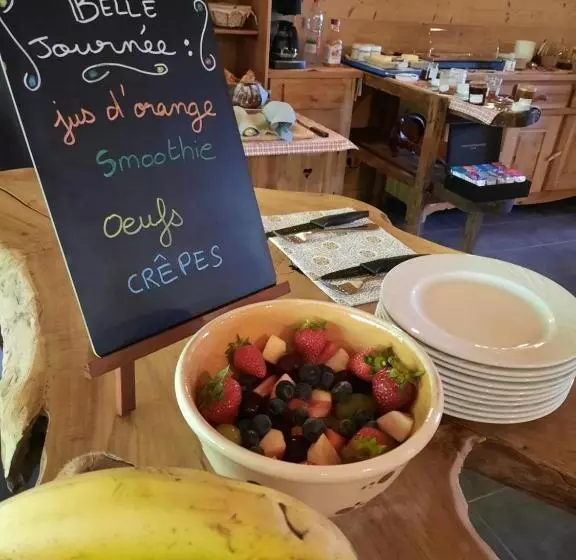 BELLE
Journée :
jus d'orange
Smoothie
Oeufs
CRÊPES